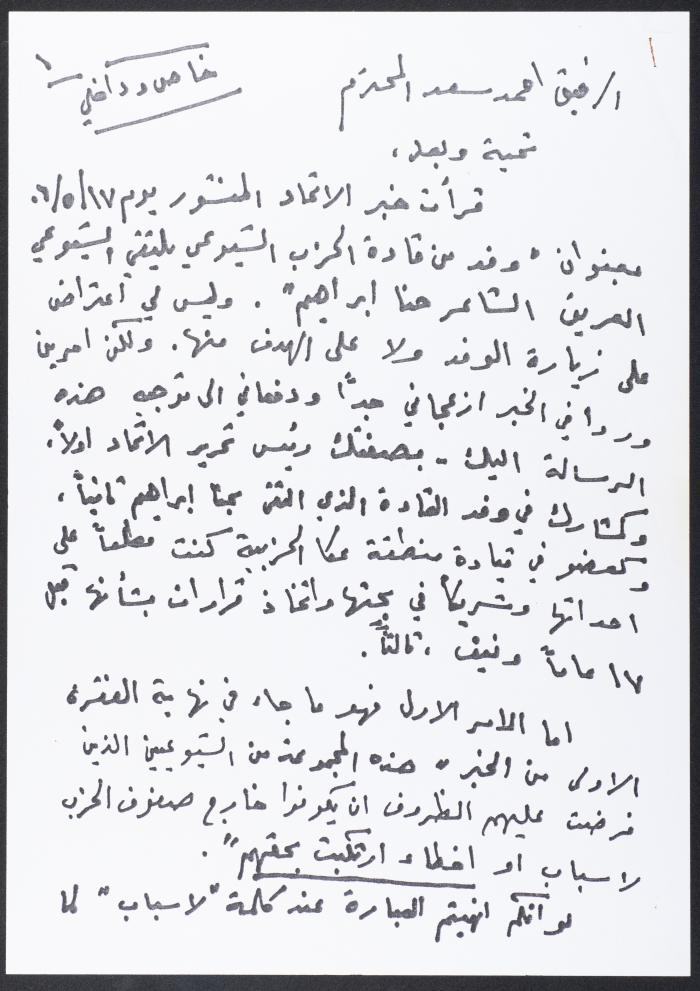 ١
خاص وداخلي
الرفيق احمد سعد المحترم
تحية وبعد،
قرأت خبر الاتحاد المنشور يوم ٠٦/٥/١٧
بعنوان "وفد من قادة الحزب الشيوعي يلتقي الشيوعي
العريق الشاعر حنا ابراهيم". وليس لي اعتراض
على زيارة الوفد ولا على الهدف منها. ولكن امرين
وردا في الخبر ازعجاني جداً ودفعاني الى توجيه هذه
الرسالة اليك - بصفتك رئيس تحرير الاتحاد اولاً،
وكمشارك في وفد القادة الذي التقى بحنا إبراهيم ثانياً،
وكعضو في قيادة منطقة عكا الحزبية كنت مطلعاً على
احداثها وشريكاً في بحثها واتخاذ قرارات بشأنها قبل
١٧ عاماً ونيف، ثالثاً.
اما الامر الاول فهو ما جاء في نهاية الفقرة
الاولى من الخبر "هذه المجموعة من الشيوعيين الذين
فرضت عليهم الظروف ان يكونوا خارج صفوف الحزب
لاسباب او اخطاء ارتكبت بحقهم".
لو انكم انهيتم العبارة عند كلمة "لاسباب" لما